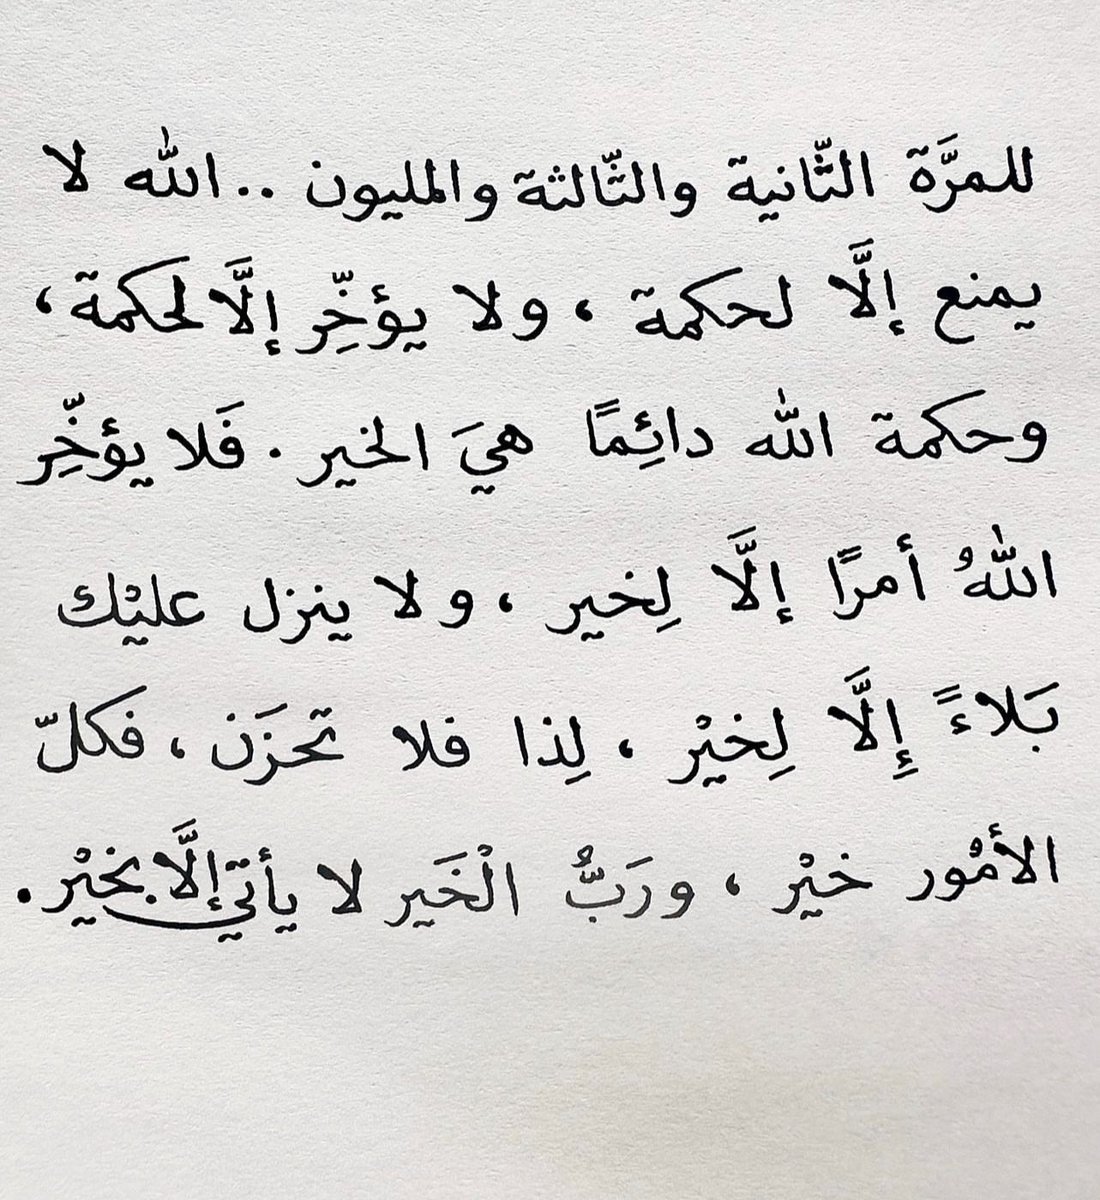 للمرَّة الثّانية والثّالثة والمليون ..الله لا
يمنع إلَّا لحكمة ، ولا يؤخِّر إلَّا لحكمة ،
وحكمة الله دائِمًا هيَ الخير . فَلا يؤخِّر
اللهُ أمرًا إلَّا لِخير ، ولا ينزل عليْك
بَلاءً إِلَّا لِخيْر ، لِذا فلا تحزَن ، فكلّ
الأمُْور خيْر ، ورَبُّ الْخَير لا يأتي إلَّا بخيْر .